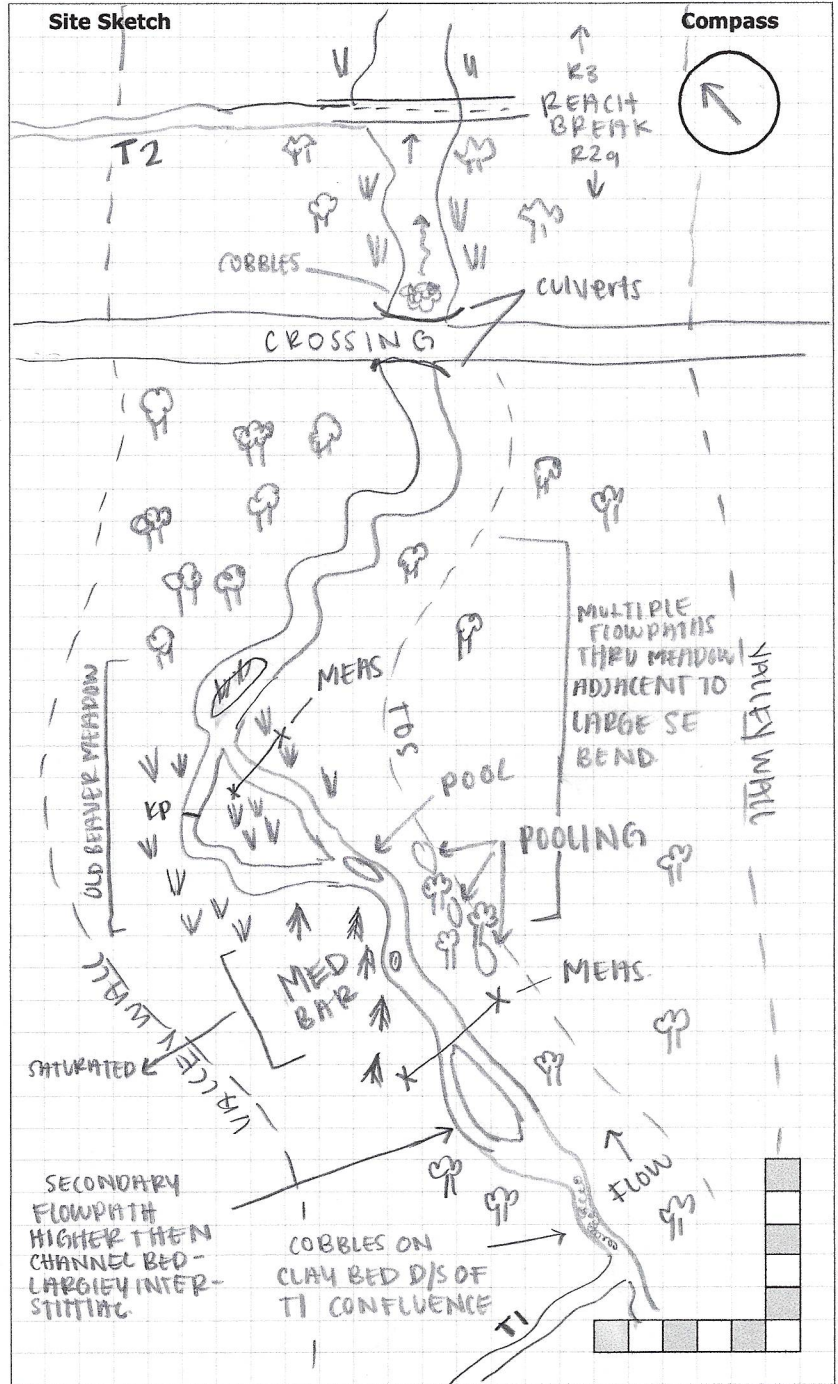 Site Sketch
Compass
R3
REACH
BREAK
R2a
T2
COBBLES
culverts
CROSSING
MULTIPLE
FLOWPATHS
THRU MEADOW
ADJACENT TO
LARGE SE
BEND
VALLEY WALL
MEAS
OLD BEAVER MEADOW
TOS
POOL
KP
POOLING
MED
BAR
MEAS.
SATURATED
VALLEY WALL
FLOW
SECONDARY
FLOWPATH
HIGHER THEN
CHANNEL BED-
LARGLEY INTER-
STITIAL.
COBBLES ON
CLAY BED D/S OF
T1 CONFLUENCE
T1